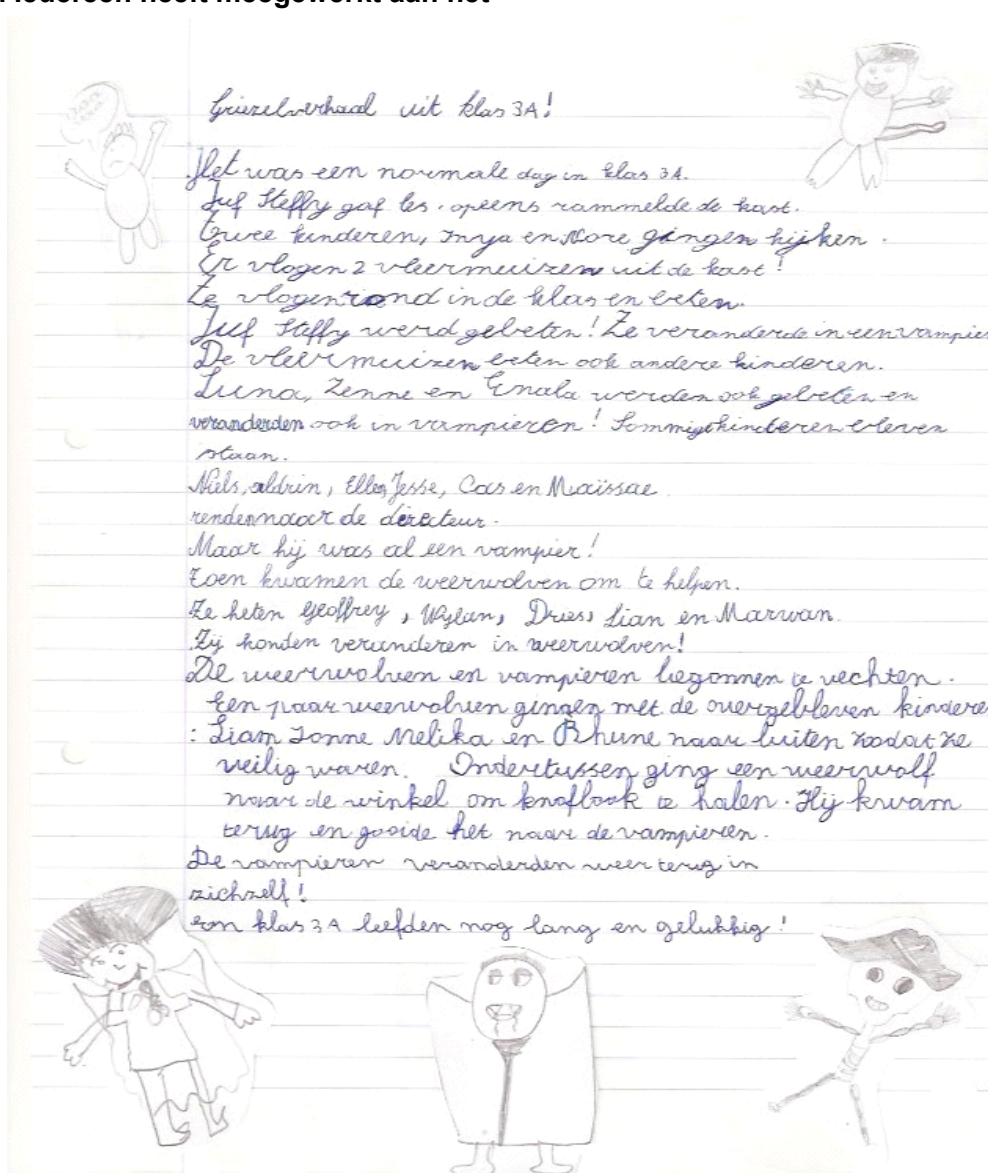 iedereen heeft meegewerkt aan het
Griezelverhaal uit klas 3A!
Het was een normale dag in klas 3A.
Juf Steffy gaf les. opeens rammelde de kast.
Twee kinderen, Inya en Nore gingen kijken.
Er vlogen 2 vleermuizen uit de kast!
Ze vlogen rond in de klas en beten.
Juf Steffy werd gebeten! Ze veranderde in een vampier
De vleermuizen beten ook andere kinderen.
Luna, Zenne en Enala werden ook gebeten en
veranderden ook in vampieren! Sommige kinderen bleven
staan.
Niels, aldrin, Ellen, Jesse, Cas en Maïssae
renden naar de directeur.
Maar hij was al een vampier!
Toen kwamen de weerwolven om te helpen.
Ze heten Geoffrey, Wylan, Dries, Lian en Marwan.
Zij konden veranderen in weerwolven!
De weerwolven en vampieren begonnen te vechten.
Een paar weerwolven gingen met de overgebleven kindere
: Liam Jonne Melika en Rhune naar buiten zodat ze
veilig waren. Ondertussen ging een weerwolf
naar de winkel om knoflook te halen. Hij kwam
terug en gooide het naar de vampieren.
De vampieren veranderden weer terug in
zichzelf!
en klas 3A leefden nog lang en gelukkig!